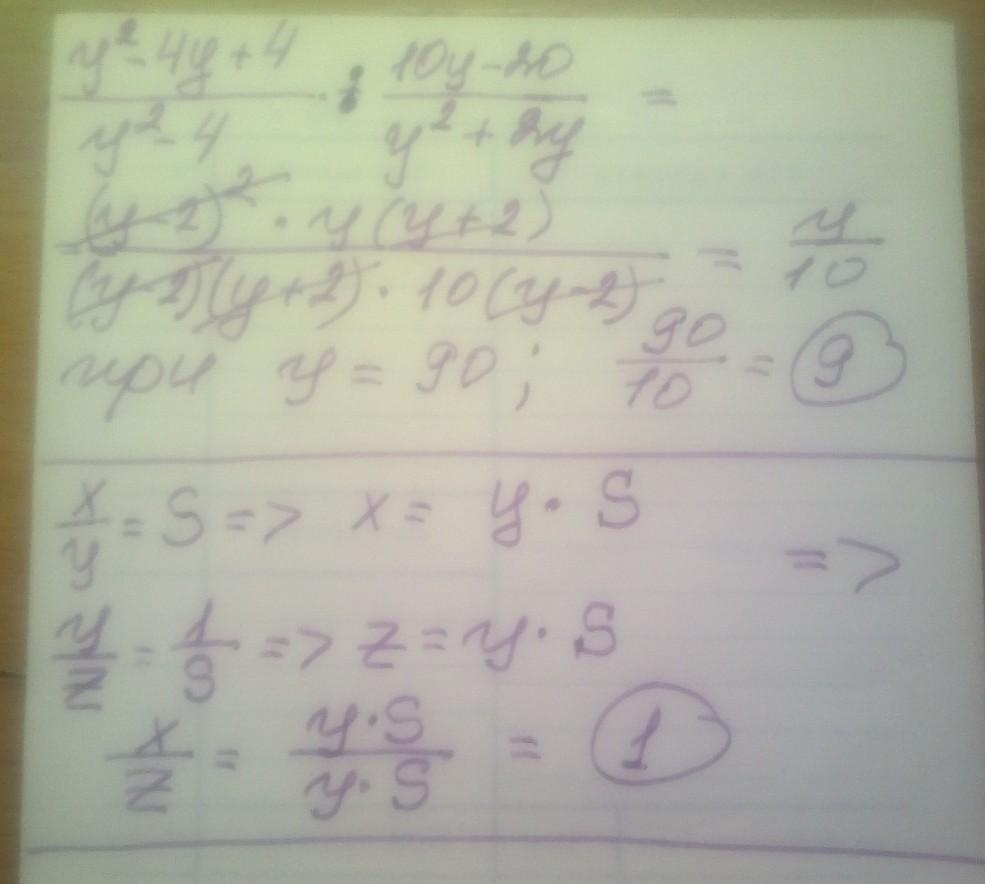 y²-4y+4 / y²-4 : 10y-20 / y²+2y =
(y-2)² · y(y+2) / (y-2)(y+2) · 10(y-2) = y / 10
при y = 90 ; 90 / 10 = 9
x / y = S => x = y · S
=>
y / z = 1 / S => z = y · S
x / z = y·S / y·S = 1